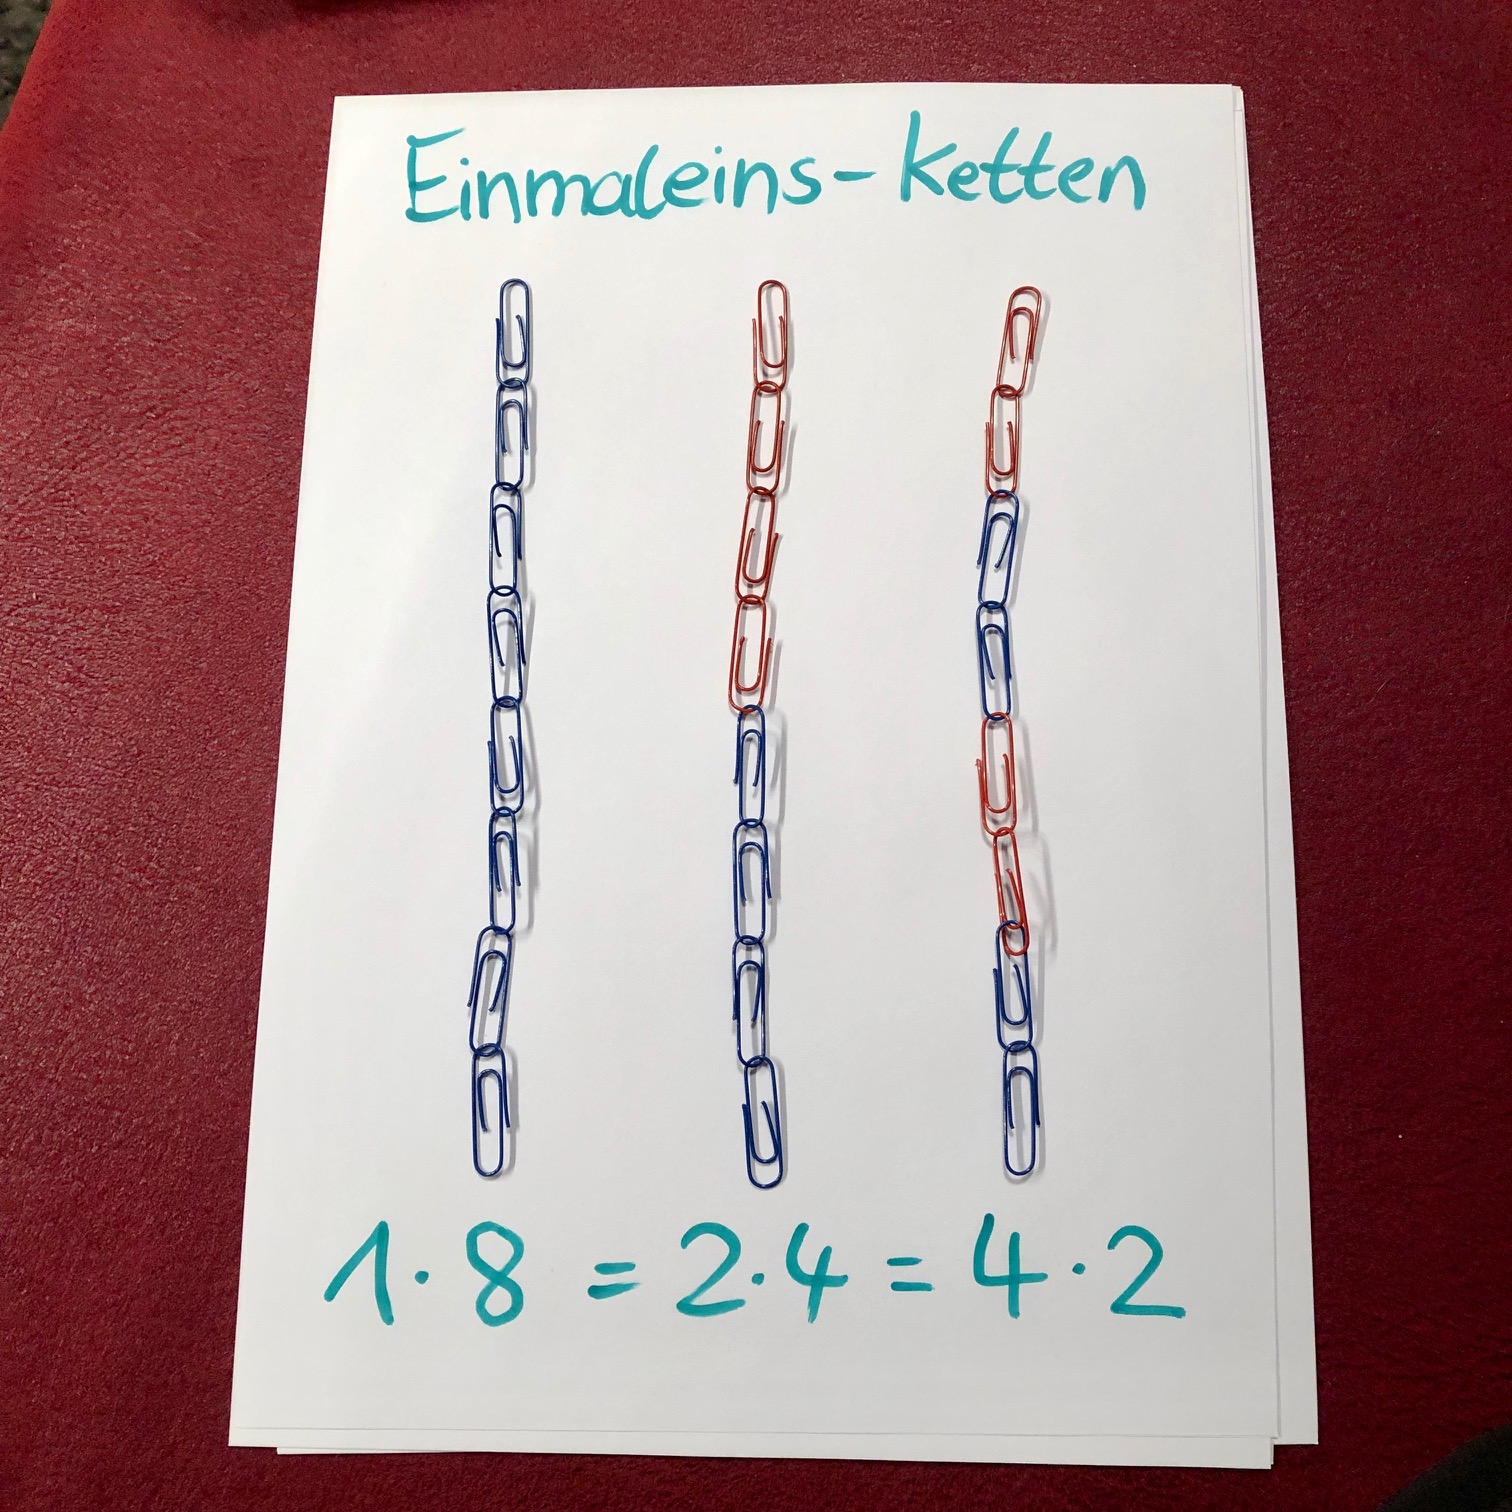 Einmaleins-Ketten
1·8 = 2·4 = 4·2